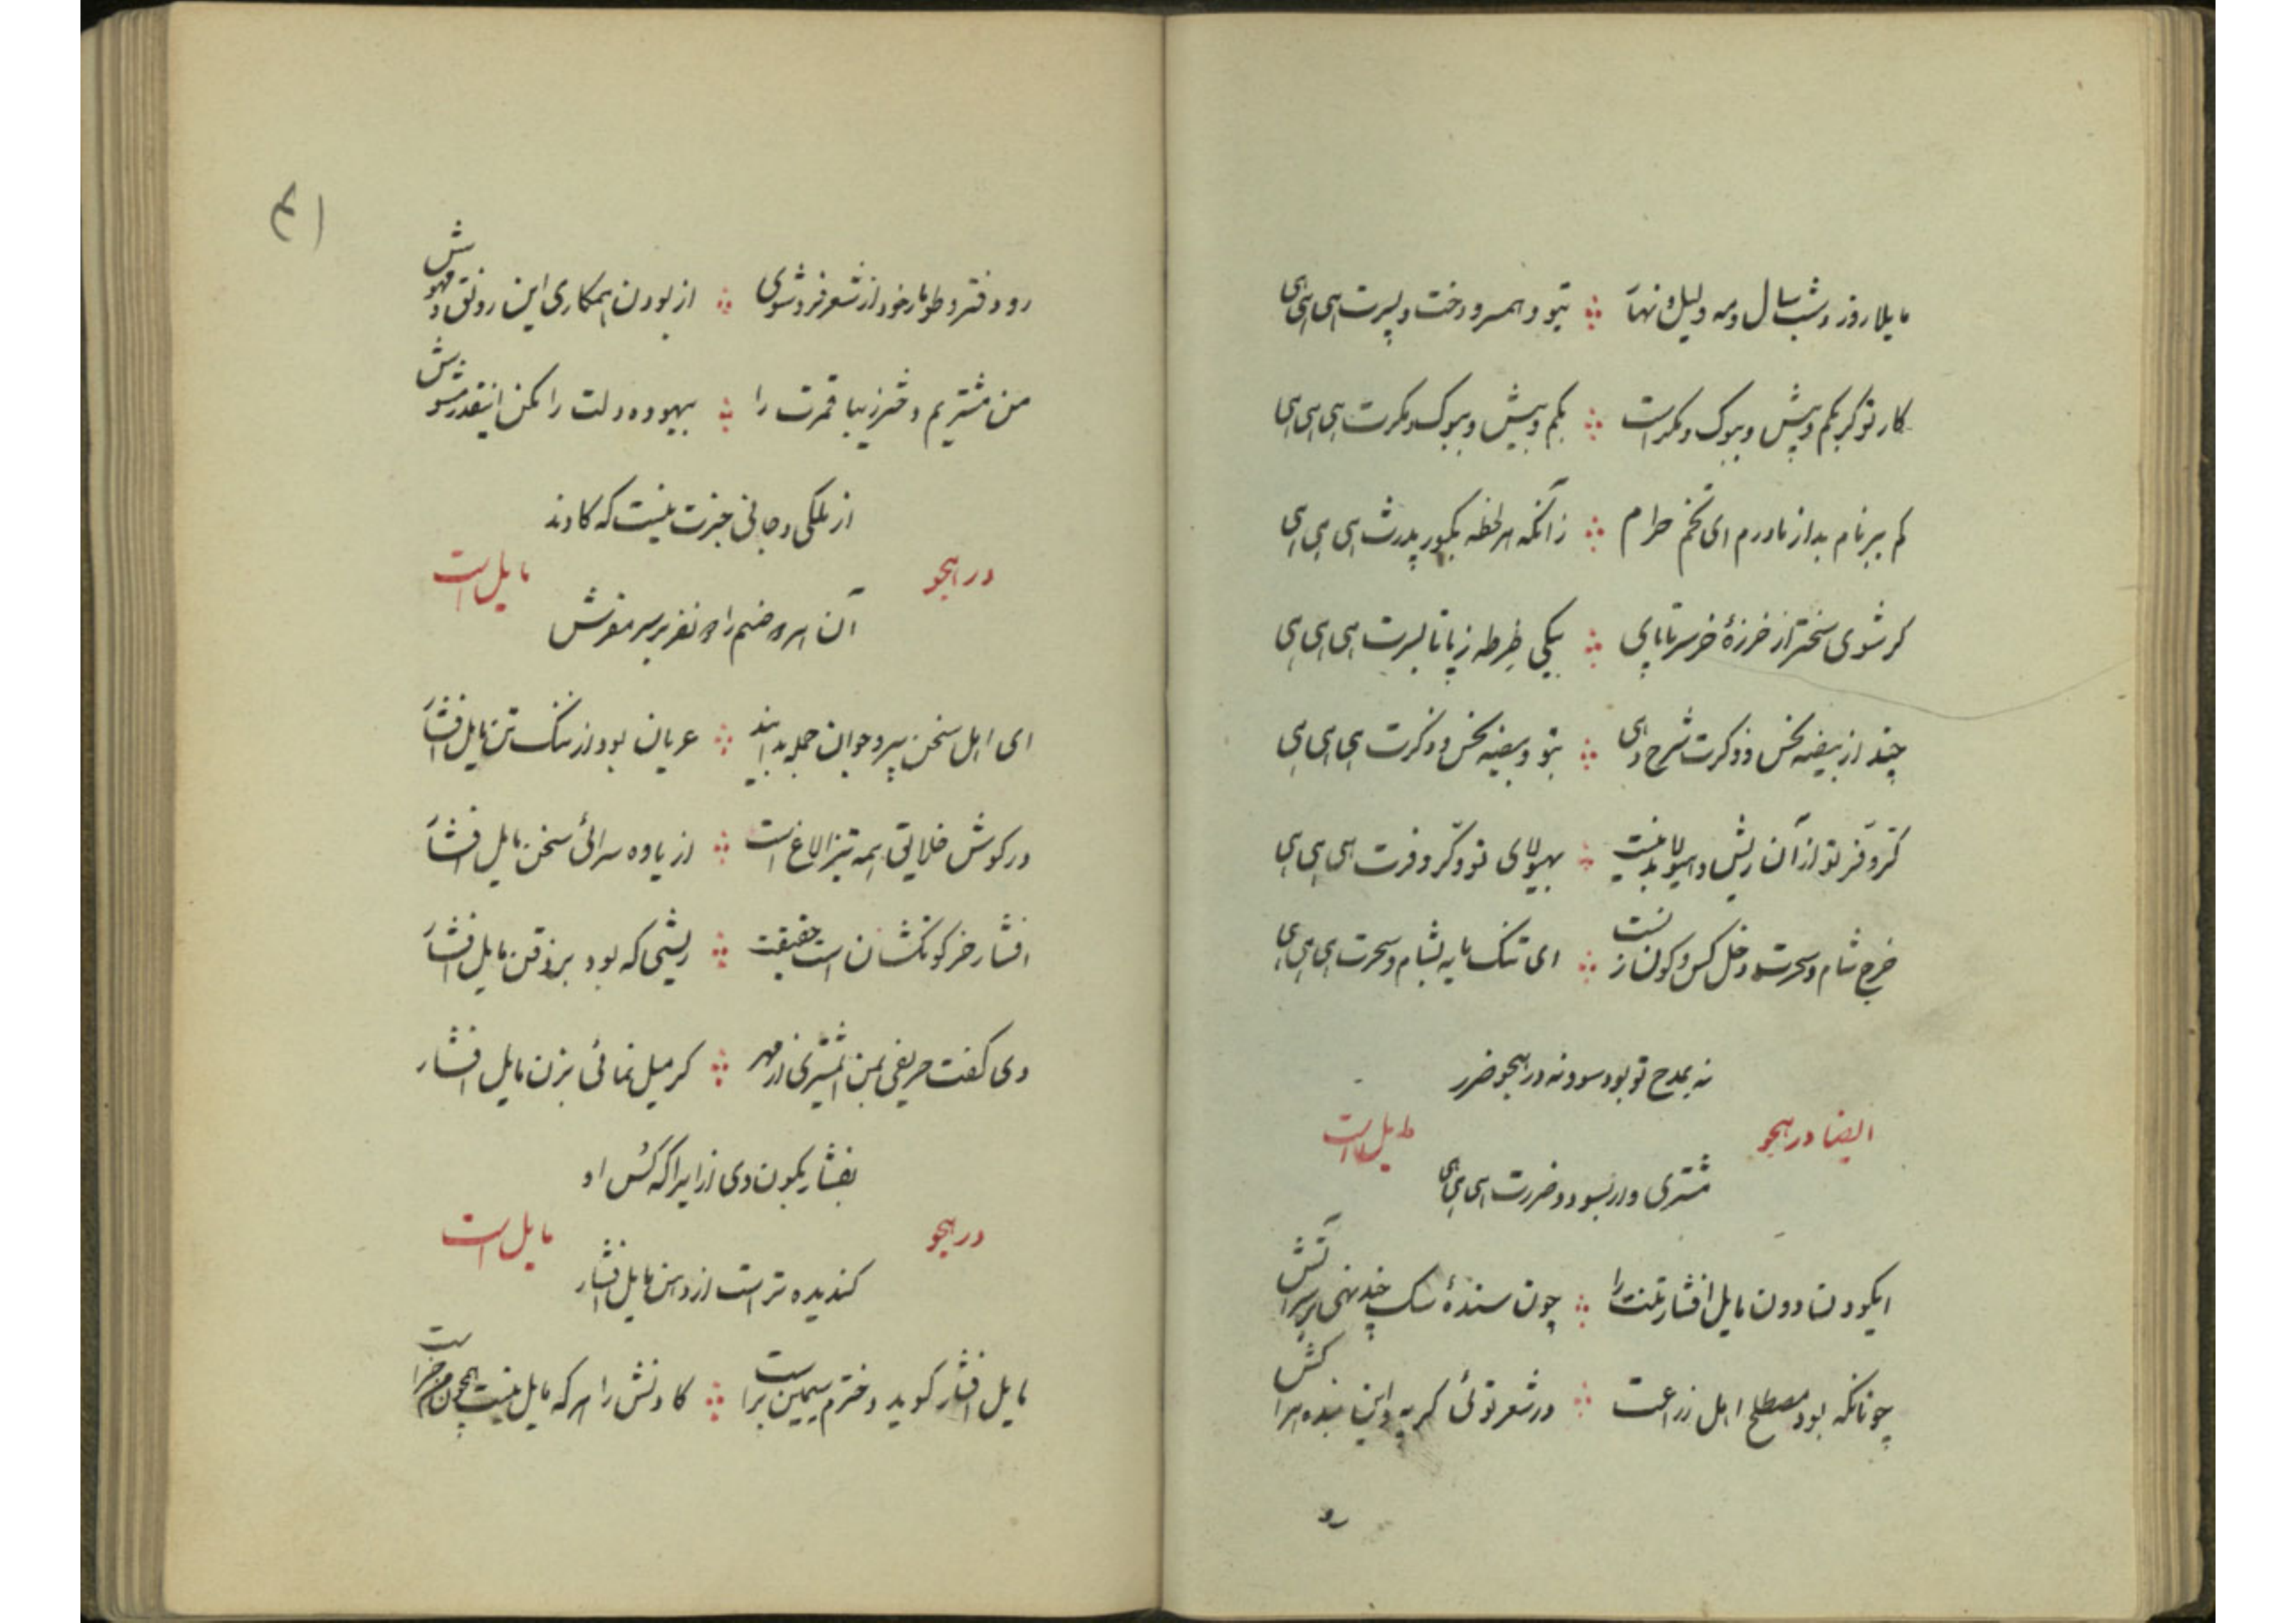 مایلا روز و شب و سال و مه ولیل و نهار بتو و همسر و دخت و پسرت هی هی هی
کار تو گر بکم و بیش و ببوک و مکر است بکم و بیش و ببوک و مکرت هی هی هی
کم ببر نام بد از مادرم ای تخم حرام زآنکه هر لحظه بگور پدرت هی هی هی
گر شوی سختر از خرزهٔ خر سرتاپای بیکی ضرطه ز پا تا بسرت هی هی هی
چند از بیضه نحس و ذکرت شرح دهی بتو و بیضه نحس و ذکرت هی هی هی
کرّ و فرّ تو از آن ریش و هیولا نیست بهیولای تو و کرّ و فرت هی هی هی
خرج شام و سحرت دخل کس و کون زنست ای تنک مایه بشام و سحرت هی هی هی
نه بمدح تو بود سود و نه در هجو ضرر
ایضا در هجو مایل است
مشتری وار بسود و ضررت هی هی هی
ایکودن دون مایل افشار تنت را چون سندهٔ سک چند نهی بر سر آتش
چونانکه بود مصطلح اهل زراعت در شعر توئی کر به و این بنده
رو
۴۱
رو دفتر و طومار خود از شعر فروشوی از بودن همکاری این رونق و
من مشتریم دختر زیبا قمرت را بیهوده دلت را مکن اینقدر مشوش
از ملکی و جانی خبرت نیست که کادند
در هجو مایل است
آن هر دو صنم را دو نفر بر سر مفرش
ای اهل سخن پیر و جوان جمله بدانید عریان بود از ننک تن مایل افشار
در کوش خلایق همه تیز الاغ است از یاوه سرائی سخن مایل افشار
افشار خر کون کشان است حقیقت ریشی که بود بر ذقن مایل افشار
دی گفت حریفی بمن ای مشتری از مهر گر میل نمائی بزن مایل افشار
بفشار بکون وی ازایرا که کس او
در هجو مایل است
کندیده تر است از دهن مایل افشار
مایل افشار گوید دخترم سیمین بر است کادنش را هر که مایل نیست همچون من خر است